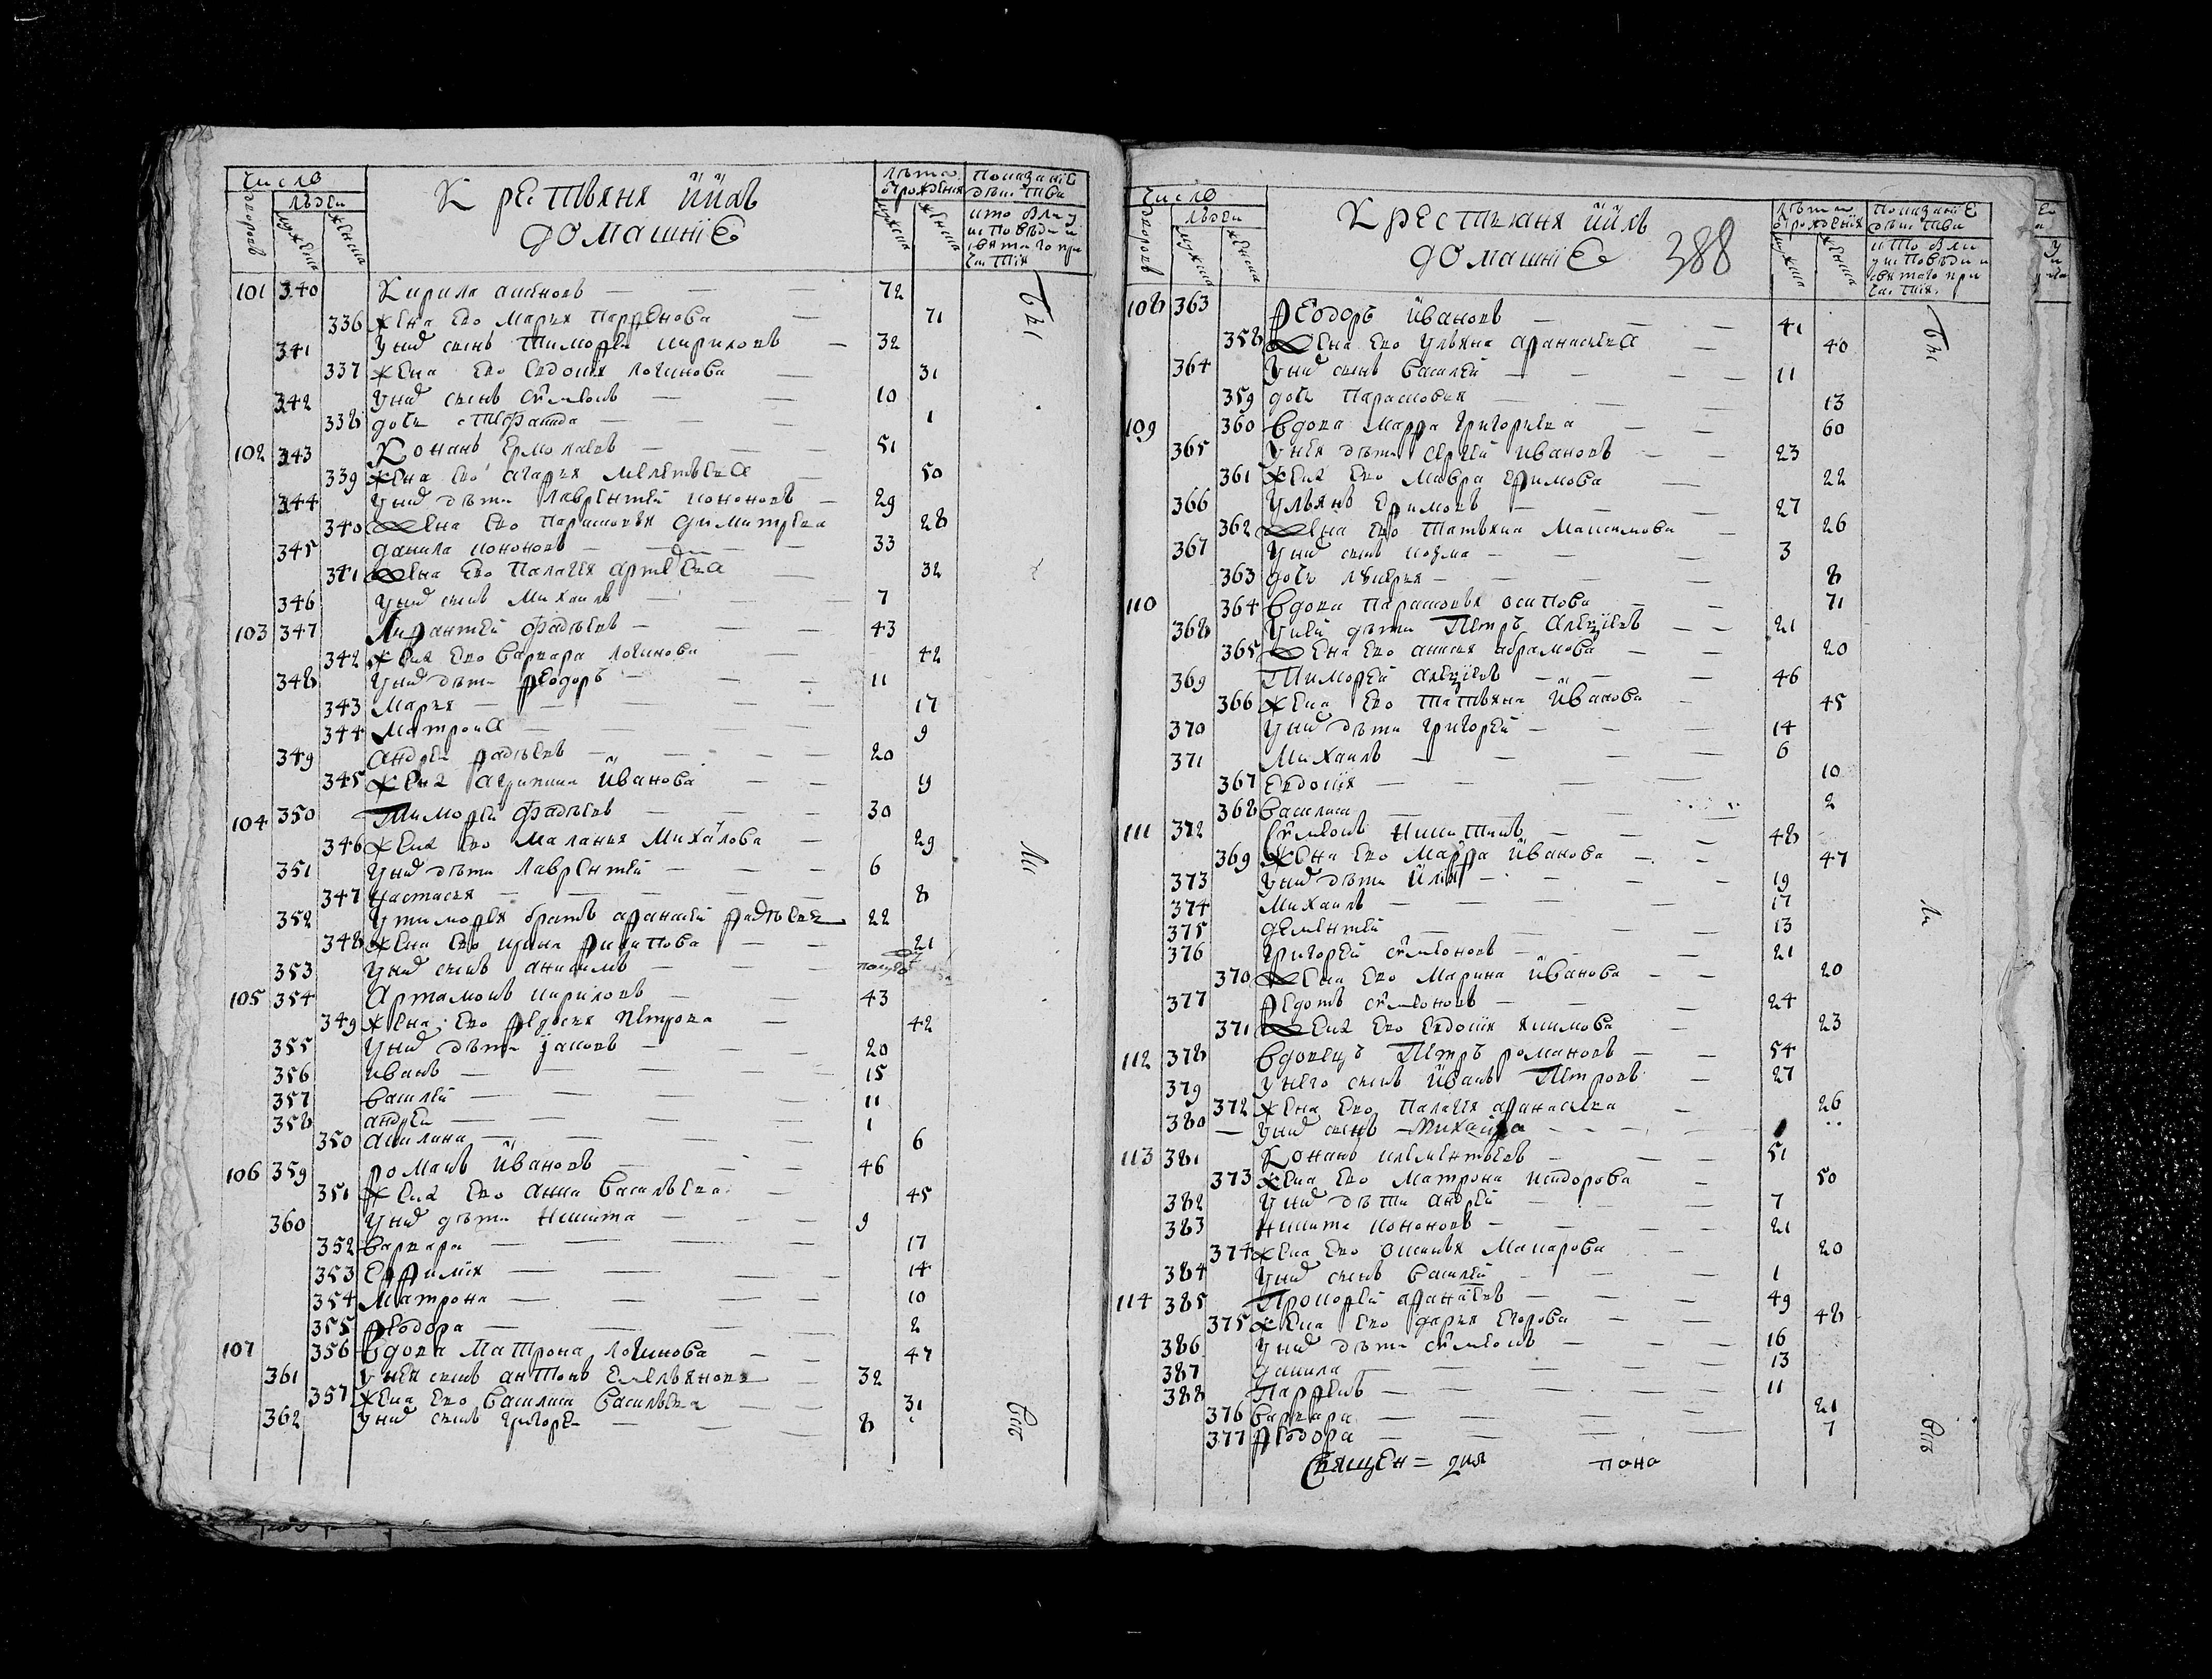 Число
людей
дворовъ
мужеска
женска
Крестьяня ӥихъ
домашнїе
лѣта
отрожденїя
мужска
женска
показанїе
дѣйства
кто былъ у
исповѣди и
святаго при
частїя
101 340 Кирила 72
336 жена ево Марья Парфенова 71
341 у них сынъ Тимофеи Кириловъ 32
337 жена ево Евдокия Логинова 31
342 у них сынъ Сѵмеонъ 10
338 дочь Стефанида 1
102 343 Конанъ Ермолаевъ 51
339 жена ево Агафья Мелетьева 50
344 у них дѣти Лаврентей Кононовъ 29
340 жена ево Парасковья Димитрева 28
345 данила Кононовъ 33
341 жена ево Палагея 32
346 у них сынъ Михаилъ 7
103 347 Лифантей Фадѣевъ 43
342 жена ево Варвара Логинова 42
348 у них дѣти Феодоръ 11
343 Марья 17
344 Матрона 9
349 Андреи Фадѣевъ 20
345 жена Агрипина Иванова 19
104 350 Тимофеи Фадѣевъ 30
346 жена ево Маланья Михайлова 29
351 у них дѣти Лаврентей 6
347 Настасья 8
352 У тимофея братъ Афанасей Фадѣевъ 22
348 жена ево Ирина Филипова 21
353 у них сынъ Анисимъ полуго
105 354 Артамонъ Кириловъ 43
349 жена ево Федосья Петрова 42
355 у них дѣти Іаковъ 20
356 Иванъ 15
357 Василей 11
358 Андреи 1
350 Акилина 6
106 359 Романъ Ивановъ 46
351 жена ево Анна Васильева 45
360 у них дѣти Никита 9
352 Варвара 17
353 Ефимия 14
354 Матрона 10
355 Феодора 2
107 356 вдова Матрона Логинова 47
361 у нея сынъ Антонъ Емельяновъ 32
357 жена ево Василиса Васильева 31
362 у них сынъ Григореи 8
Число
людей
дворовъ
мужска
женска
Крестьяня ӥихъ
домашнїе
388
лѣта
отрожденїя
мужска
женска
показанїе
дѣйства
кто былъ
у исповѣди и
святаго при
частїя
108 363 Феодоръ Ивановъ 41
358 жена ево Ульяна Афанасьева 40
364 у них сынъ Василей 11
359 дочь Парасковея 13
109 360 вдова Марфа Григорьева 60
365 у нея дѣти Сергей Ивановъ 23
361 жена ево Мавра Ефимова 22
366 Ульянъ Ефимовъ 27
362 жена ево Татьяна Максимова 26
367 у них сынъ Козма 3
363 дочь Лукерья 8
110 364 вдова Парасковья Осипова 71
368 у ней дѣти Петръ Алексѣевъ 21
365 жена ево Анисья Абрамова 20
369 Тимофеи Алексѣевъ 46
366 жена ево Татьяна Иванова 45
370 у них дѣти Григорей 14
371 Михаилъ 6
367 Евдокия 10
368 Василиса 2
111 372 Сѵмеонъ Никитинъ 48
369 жена ево Марфа Иванова 47
373 у них дѣти Илья 19
374 Михаилъ 17
375 Дементей 13
376 Григорей Сѵмеоновъ 21
370 жена ево Марина Иванова 20
377 Федотъ Сѵмеоновъ 24
371 жена ево Евдокия Якимова 23
112 378 вдовецъ Петръ Романовъ 54
379 у него сынъ Иванъ Петровъ 27
372 жена ево Палагея Афанасьева 26
380 у них сынъ Михайла 1
113 381 Конанъ Клементьевъ 51
373 жена ево Матрона Исидорова 50
382 у них дѣти Андрей 7
383 Никита Кононовъ 21
374 жена ево Макарова 20
384 у них сынъ Василей 1
114 385 Прокофей Афанасьевъ 49
375 жена ево Дарья Егорова 48
386 у них дѣти Сѵмеонъ 16
387 Данила 13
388 Парфенъ 11
376 Варвара 21
377 Феодора 7
Священ=